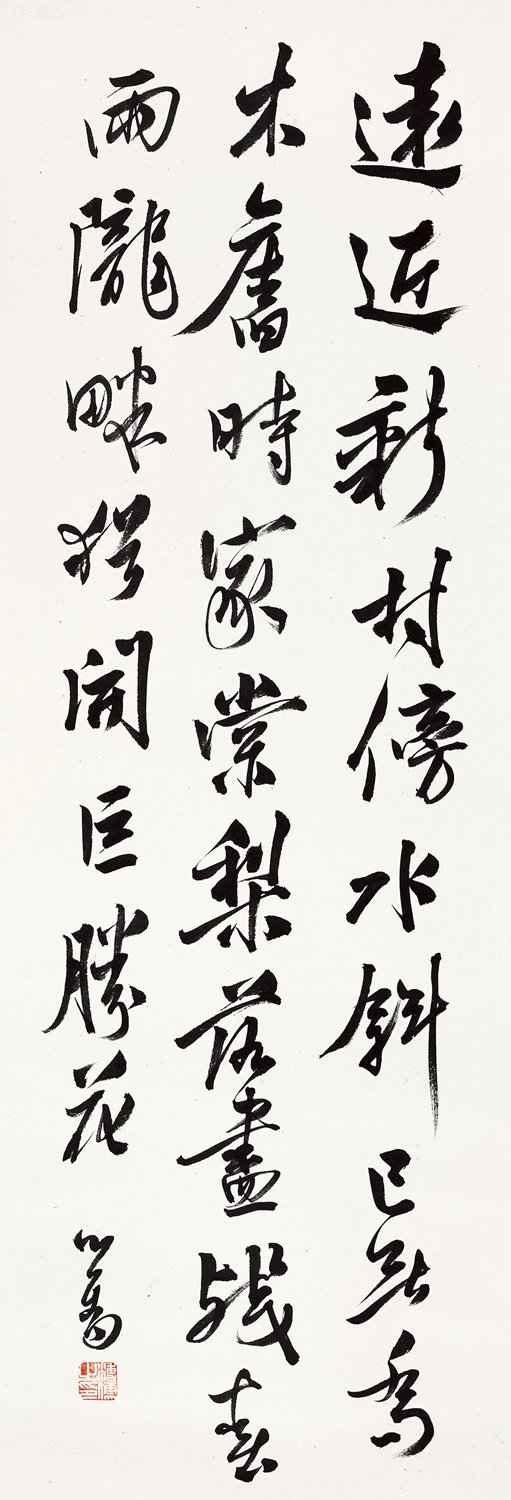 遠近新村傍水斜已無喬
木舊時家棠梨落盡殘春
雨隴畔猶開巨勝花
心畬